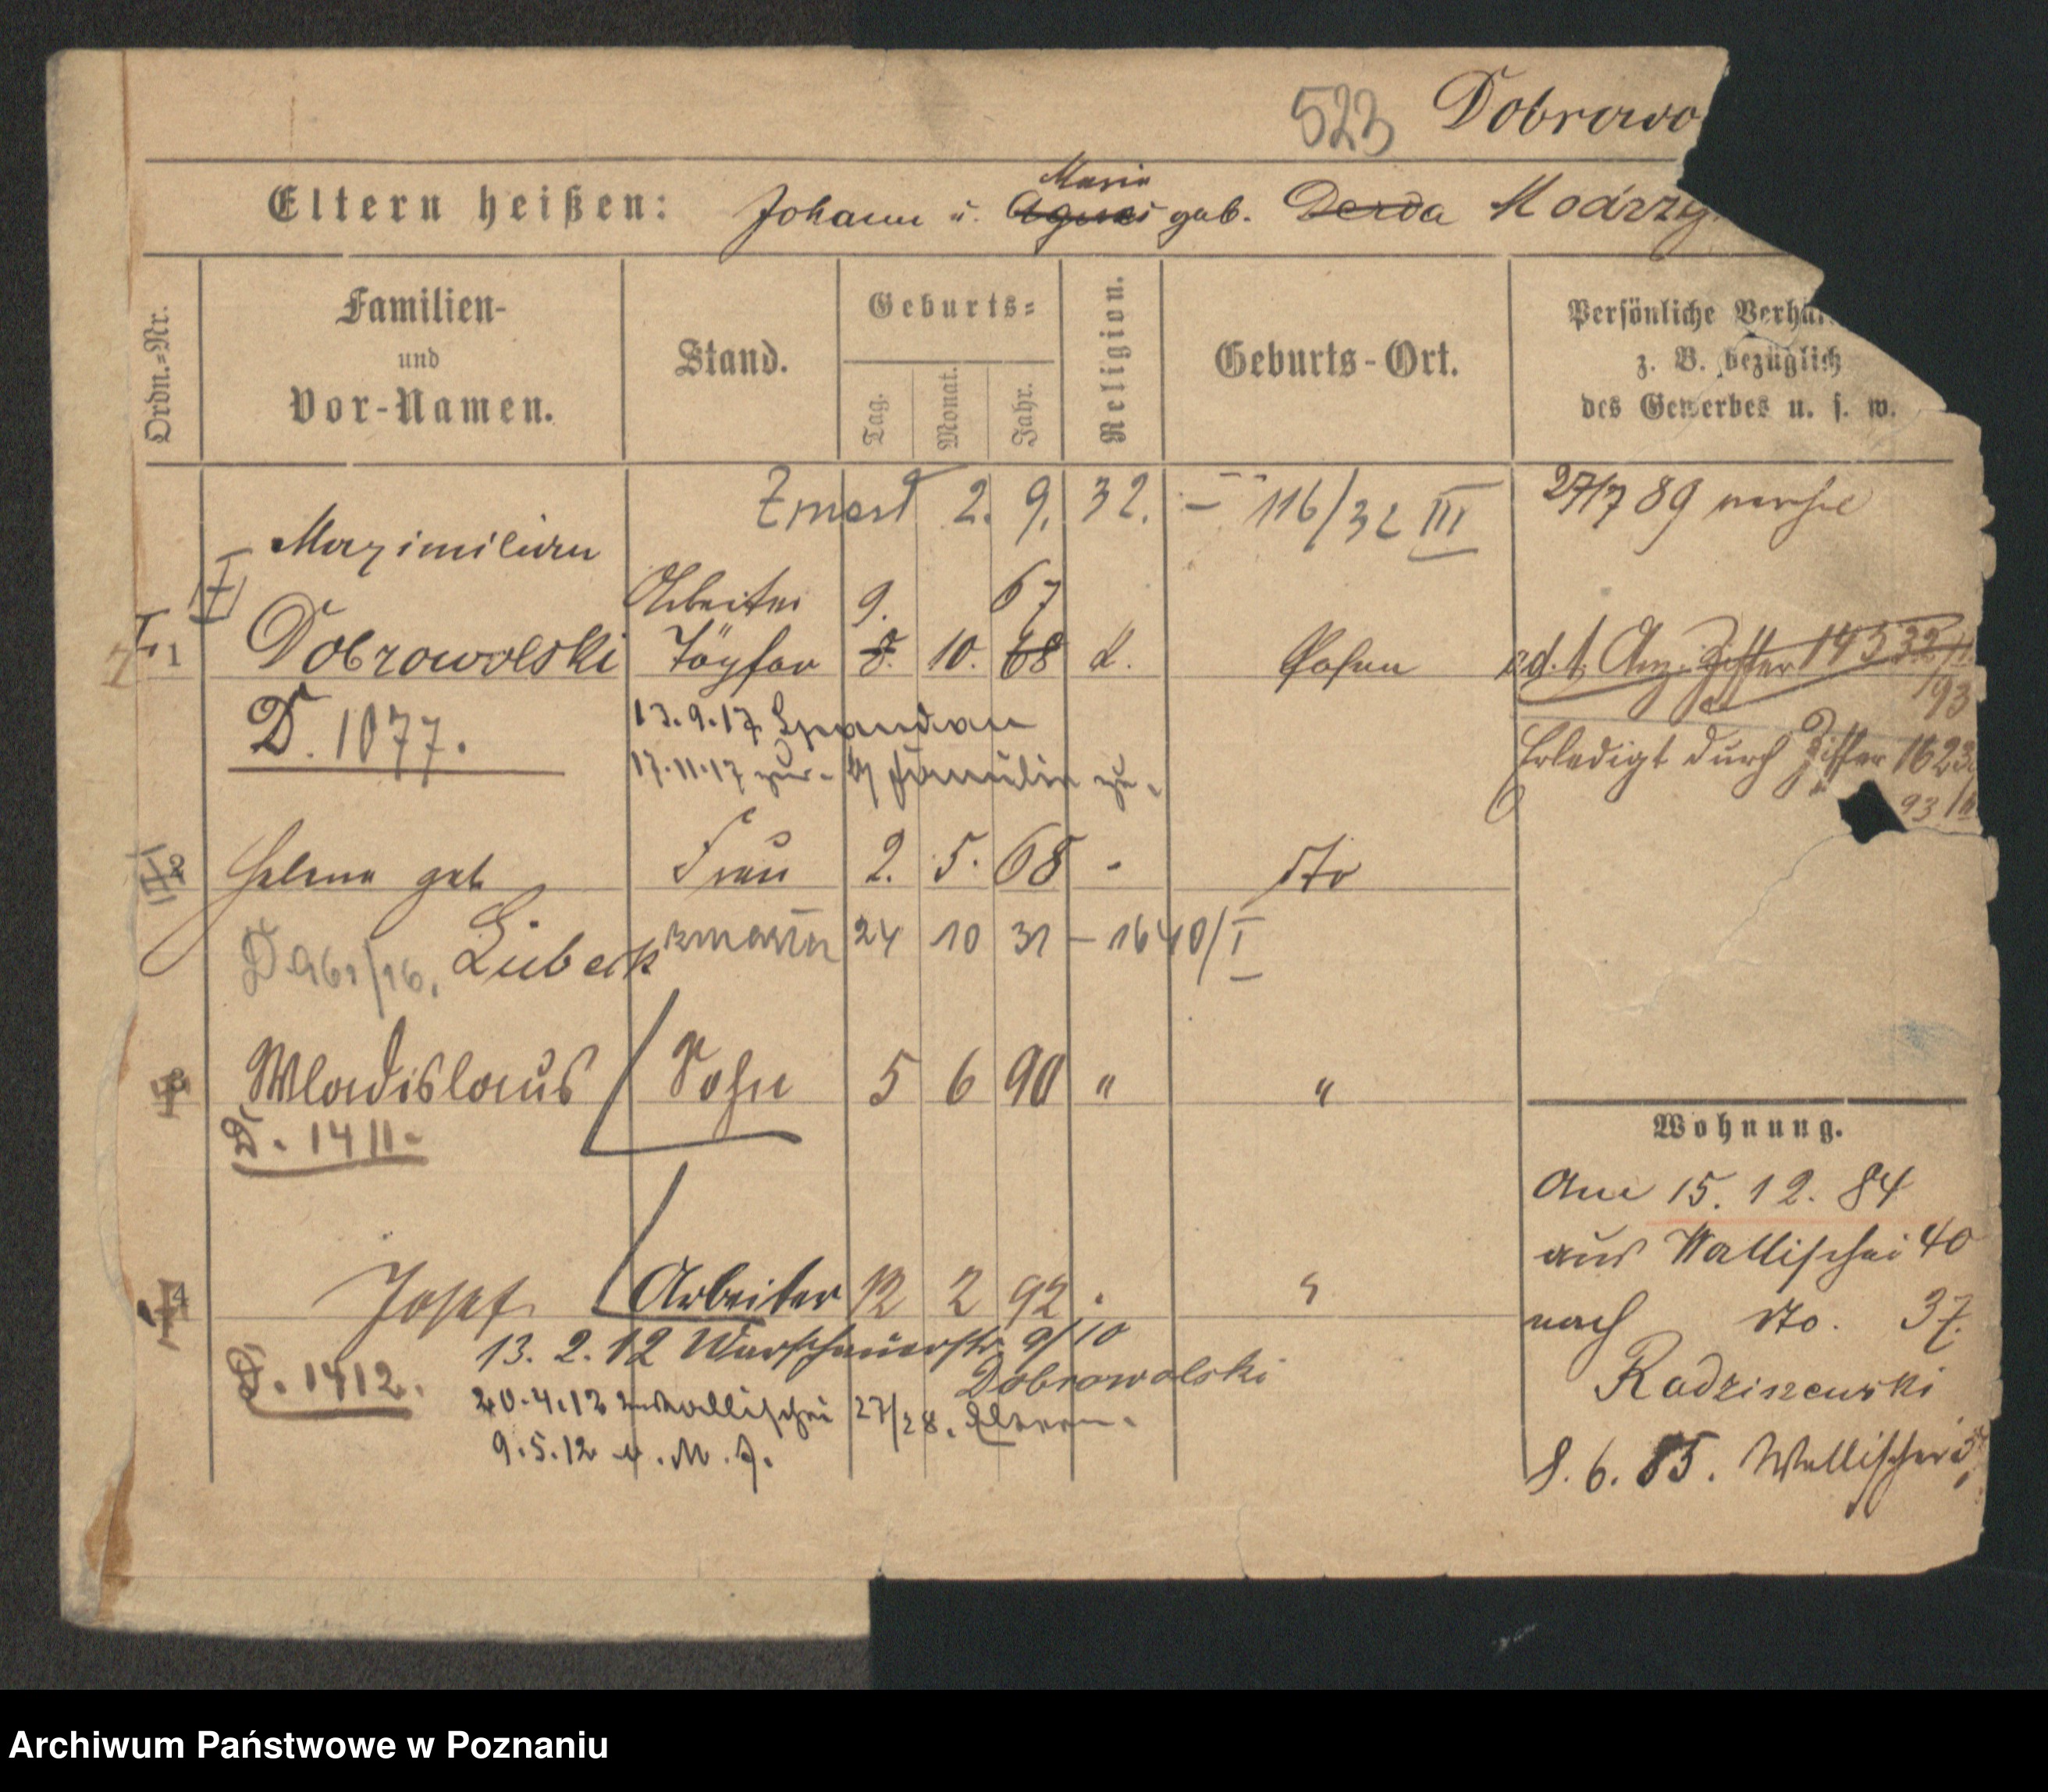 523 Dobrowo
Eltern heißen: Johann u. Agnes Maria geb. Derda Modrzy
Ordn.=Nr.
Familien-
und
Vor-Namen.
Stand.
Geburts=
Tag.
Monat.
Jahr.
Religion.
Geburts-Ort.
Persönliche Verhä
z. B. bezüglich
des Gewerbes u. s. w.
Zmarł 2. 9. 32. – 116/32 III
27/7 89
Maximilian
Arbeiter 9. 67
1 Dobrowolski Töpfer 8. 10. 68 k. Posen
Anz. Ziffer 14532
93
D. 1077.
13.9.17 Spandau
17.11.17 zur. Familie
Erledigt durch Ziffer 1623
93
2 Helena geb Frau 2. 5. 68 - dto
D 961/16. Lübeck zmarła 24 10 31 – 1640/I
3 Wladislaus Sohn 5 6 90 " "
D. 1411.
Wohnung.
Am 15. 12. 84
aus Wallischei 40
nach dto. 37.
Radziszewski
8. 6. 85. Wallischei
4 Josef Arbeiter 12 2 92
13. 2. 12 Warschauerstr. 9/10
Dobrowolski
D. 1412.
20.4.12 Wallischei 27/28. Eltern.
9.5.12
Archiwum Państwowe w Poznaniu